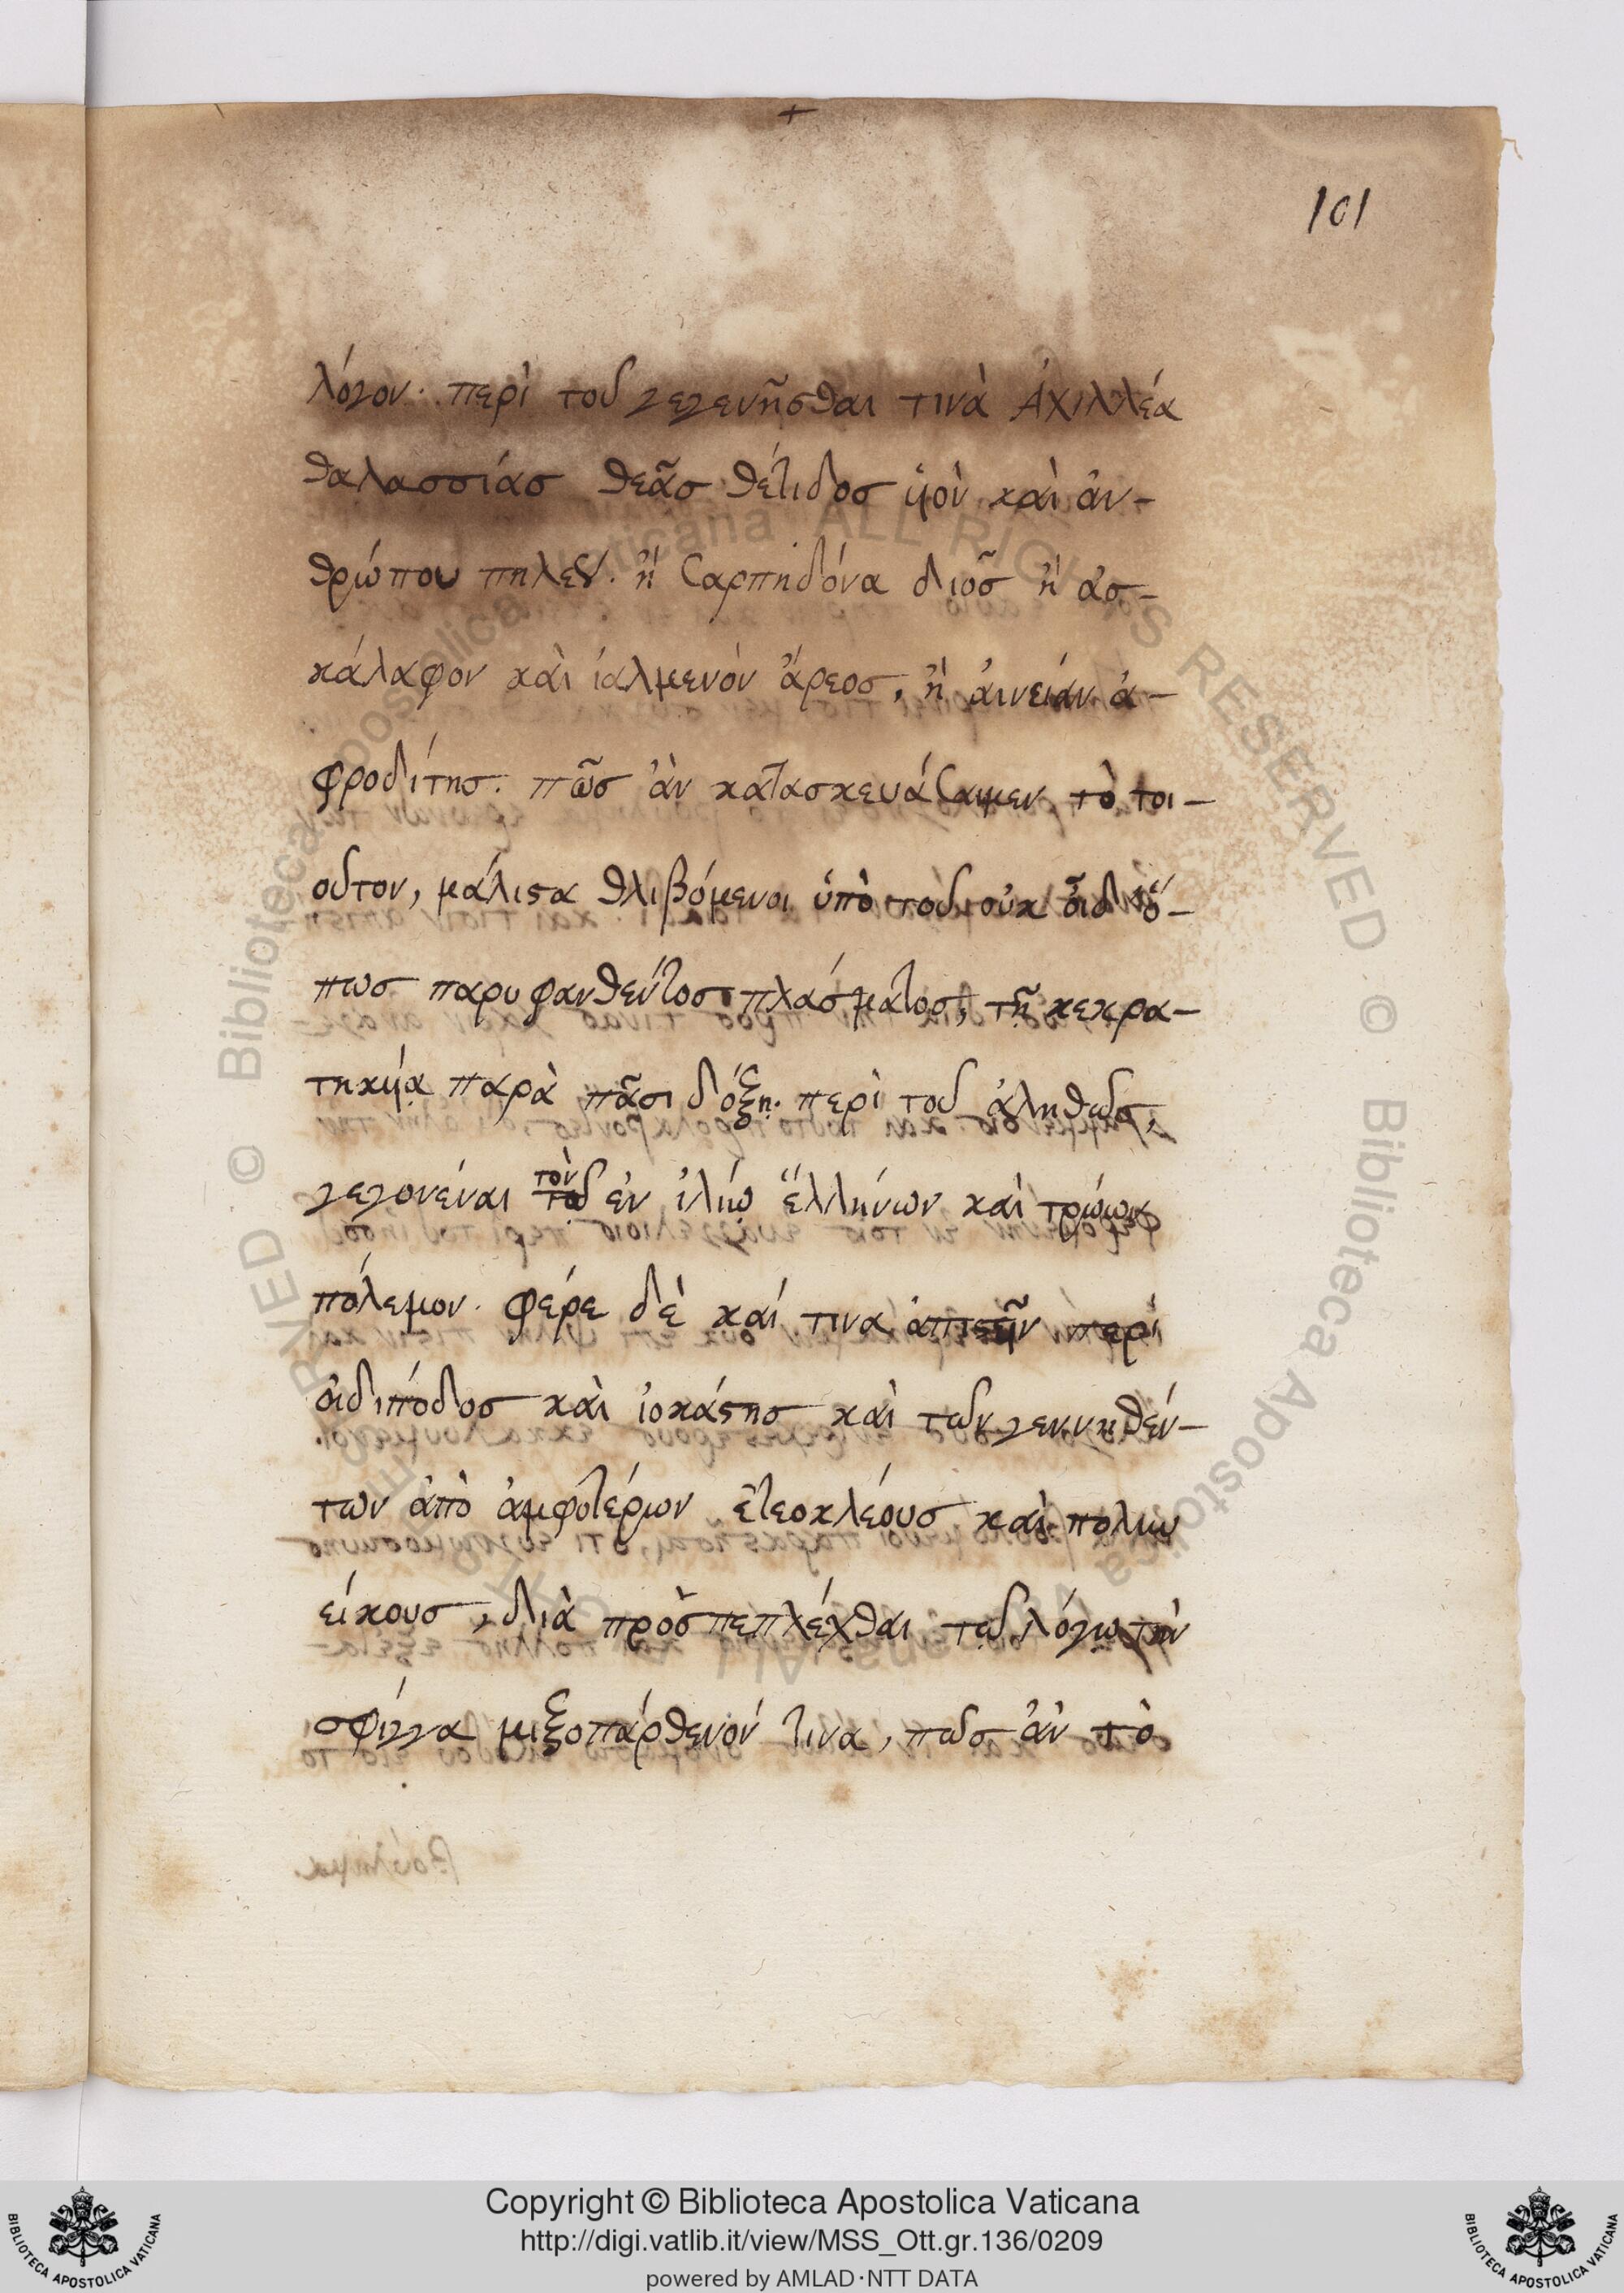 101
λόγον· περὶ τοῦ γεγενῆσθαι τινὰ Ἀχιλλέα
θαλασσίας θεᾶς θέτιδος ὑιὸν καὶ ἀν-
θρώπου πηλέως· ἢ Σαρπηδόνα διὸς ἢ ἀσ-
κάλαφον καὶ ἰαλμενὸν ἄρεος, ἢ ἀινείαν ἀ-
φροδίτης· πῶς ἂν κατασκευάσαιμεν τὸ τοι-
οῦτον, μάλιϛα θλιβόμενοι ὑπὸ τοῦ οὐκ οἶδ' ὅ-
πως παρυφανθέντος πλάσματος, τῇ κεκρα-
τηκυία παρὰ πᾶσι δόξῃ· περὶ τοῦ ἀληθῶς,
γεγονέναι τὸν ἐν ἰλίῳ ἕλλήνων καὶ τρώων
πόλεμον· φέρε δὲ καί τινα ἀπιϛεῖν περὶ
ὀιδιπόδος καὶ ἰοκάϛης καὶ τῶν γεννηθέν-
των ἀπὸ ἀμφοτέρων ἐτεοκλέους καὶ πολυν
είκους, διὰ πρὸσπεπλέχθαι τῷ λόγῳ τὴν
σφίγγα μιξοπάρθενόν τινα, πῶς ἂν τὸ
Copyright © Biblioteca Apostolica Vaticana
http://digi.vatlib.it/view/MSS_Ott.gr.136/0209
powered by AMLAD·NTT DATA